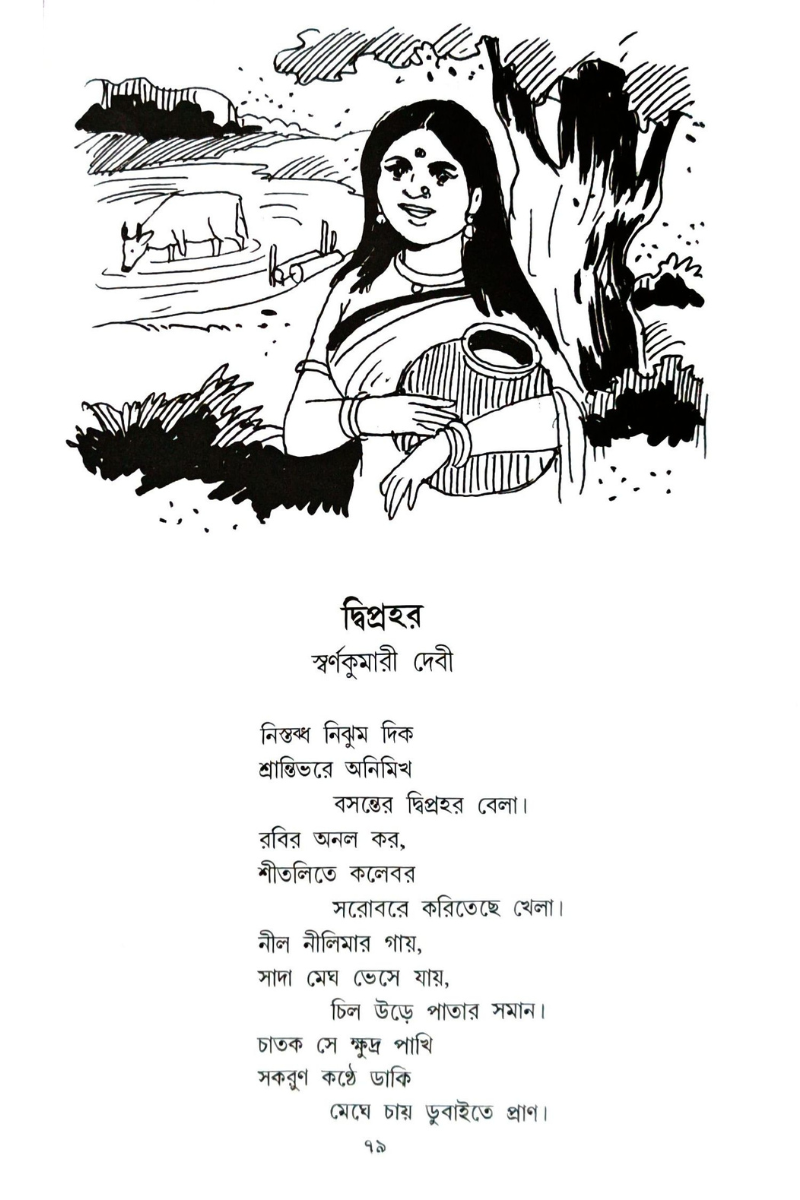 দ্বিপ্রহর
স্বর্ণকুমারী দেবী
নিস্তব্ধ নিঝুম দিক
শ্রান্তিভরে অনিমিখ
বসন্তের দ্বিপ্রহর বেলা।
রবির অনল কর,
শীতলিতে কলেবর
সরোবরে করিতেছে খেলা।
নীল নীলিমার গায়,
সাদা মেঘ ভেসে যায়,
চিল উড়ে পাতার সমান।
চাতক সে ক্ষুদ্র পাখি
সকরুণ কণ্ঠে ডাকি
মেঘে চায় ডুবাইতে প্রাণ।
৭৯